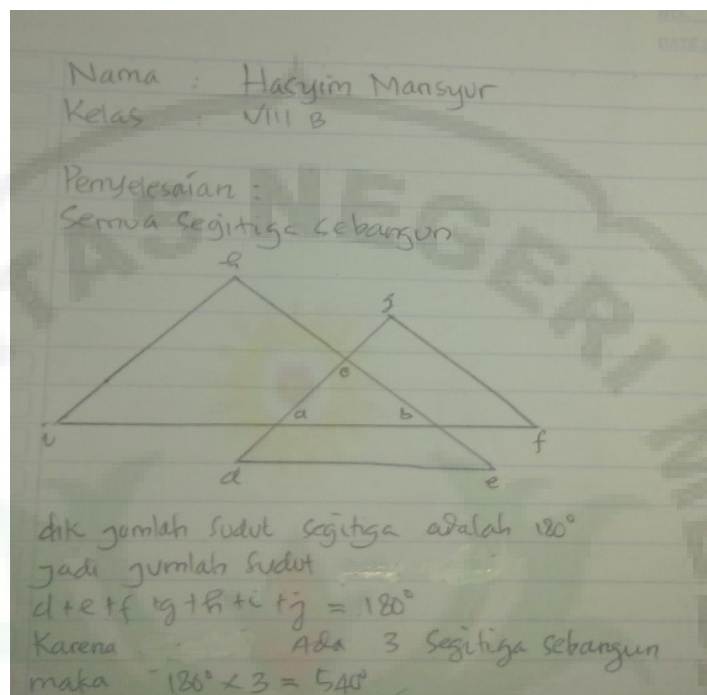 Nama : Hasyim Mansyur
Kelas : VIII B
Penyelesaian :
Semua segitiga sebangun
h
g
c
a b
i f
d e
dik jumlah sudut segitiga adalah 180°
Jadi jumlah sudut
d + e + f + g + h + i + j = 180°
Karena Ada 3 segitiga sebangun
maka 180° × 3 = 540°
TAS NEGERI M